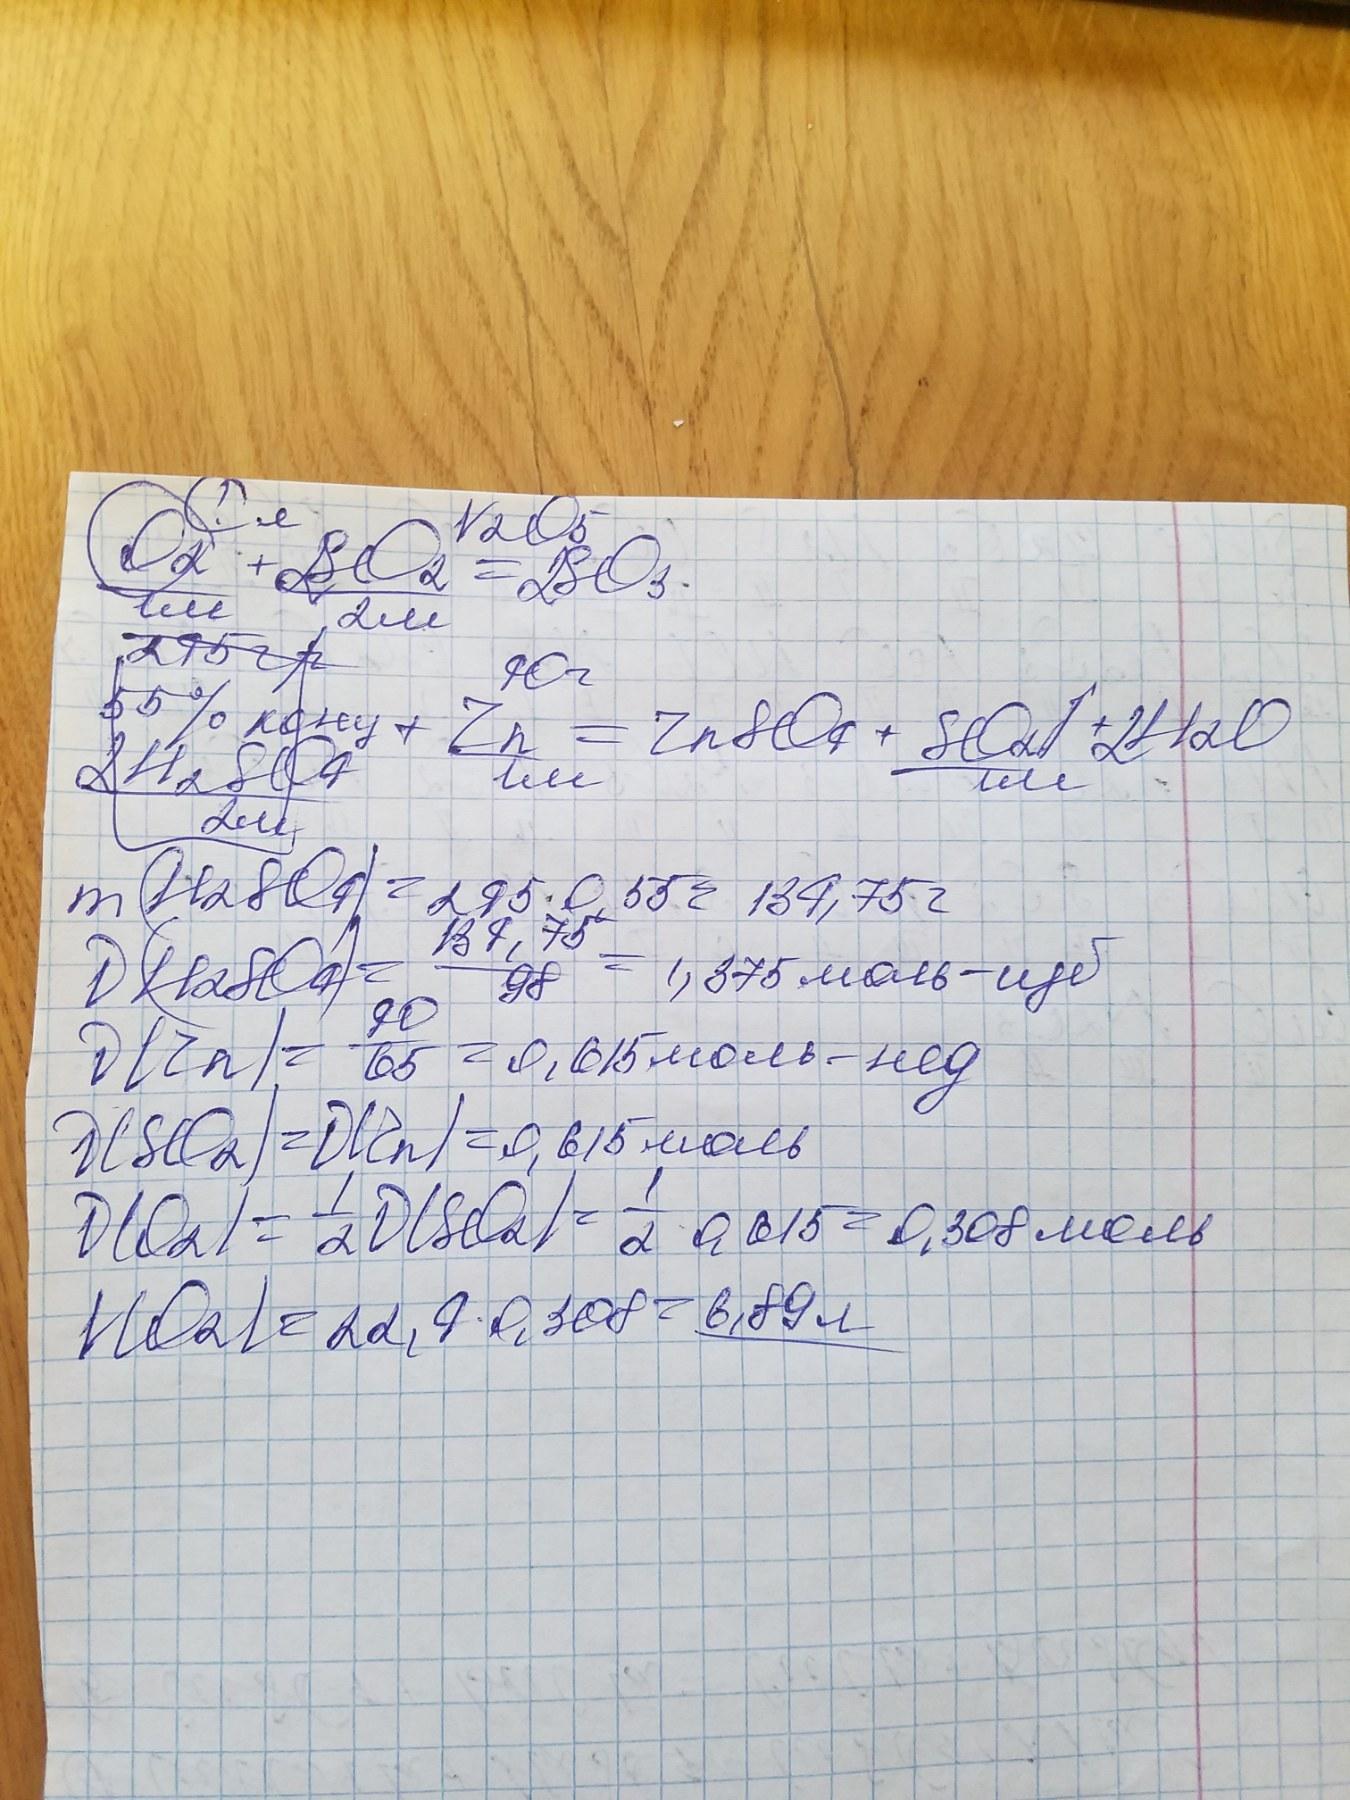 V2O5
O2 + 2SO2 = 2SO3.
1м 2м
245 г р
40г
55% конц + Zn = ZnSO4 + SO2↑ + 2H2O
2H2SO4 1м 1м
2м
m(H2SO4) = 245·0,55 = 134,75г
ν(H2SO4) = 134,75/98 = 1,375 моль-изб
ν(Zn) = 40/65 = 0,615 моль-нед
ν(SO2) = ν(Zn) = 0,615 моль
ν(O2) = 1/2 ν(SO2) = 1/2 0,615 = 0,308 моль
V(O2) = 22,4·0,308 = 6,89л